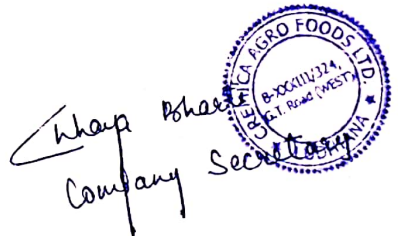 Chhaya Bharti
Company Secretary
CREMICA AGRO FOODS LTD.
B-XXXIII/324,
G.T. Road (WEST)
★ LUDHIANA ★